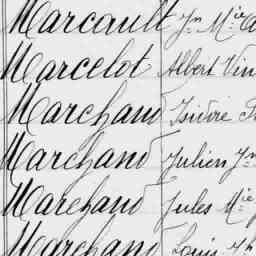 Marcault Jn Mie
Marcelot Albert Vin
Marchand Isidore
Marchand Julien Jn
Marchand Jules Mie
Marchand Louis